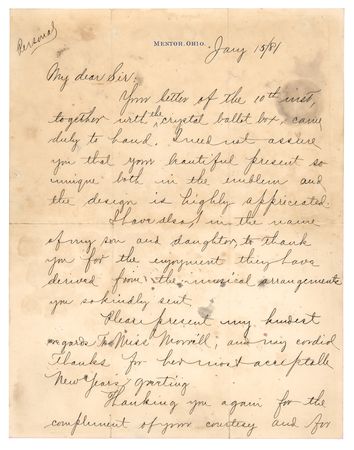 Personal
MENTOR, OHIO.
Jany 15/81
My dear Sir:
Your letter of the 10th inst,
together with the crystal ballot box, came
duly to hand. I need not assure
you that your beautiful present so
unique both in the emblem and
the design is highly appreciated.
I have also, in the name
of my son and daughter, to thank
you for the enjoyment they have
derived from the musical arrangements
you so kindly sent.
Please present my kindest
regards to Miss Morrill, and my cordial
thanks for her most acceptable
New Years greeting
Thanking you again for the
complement of your courtesy and for